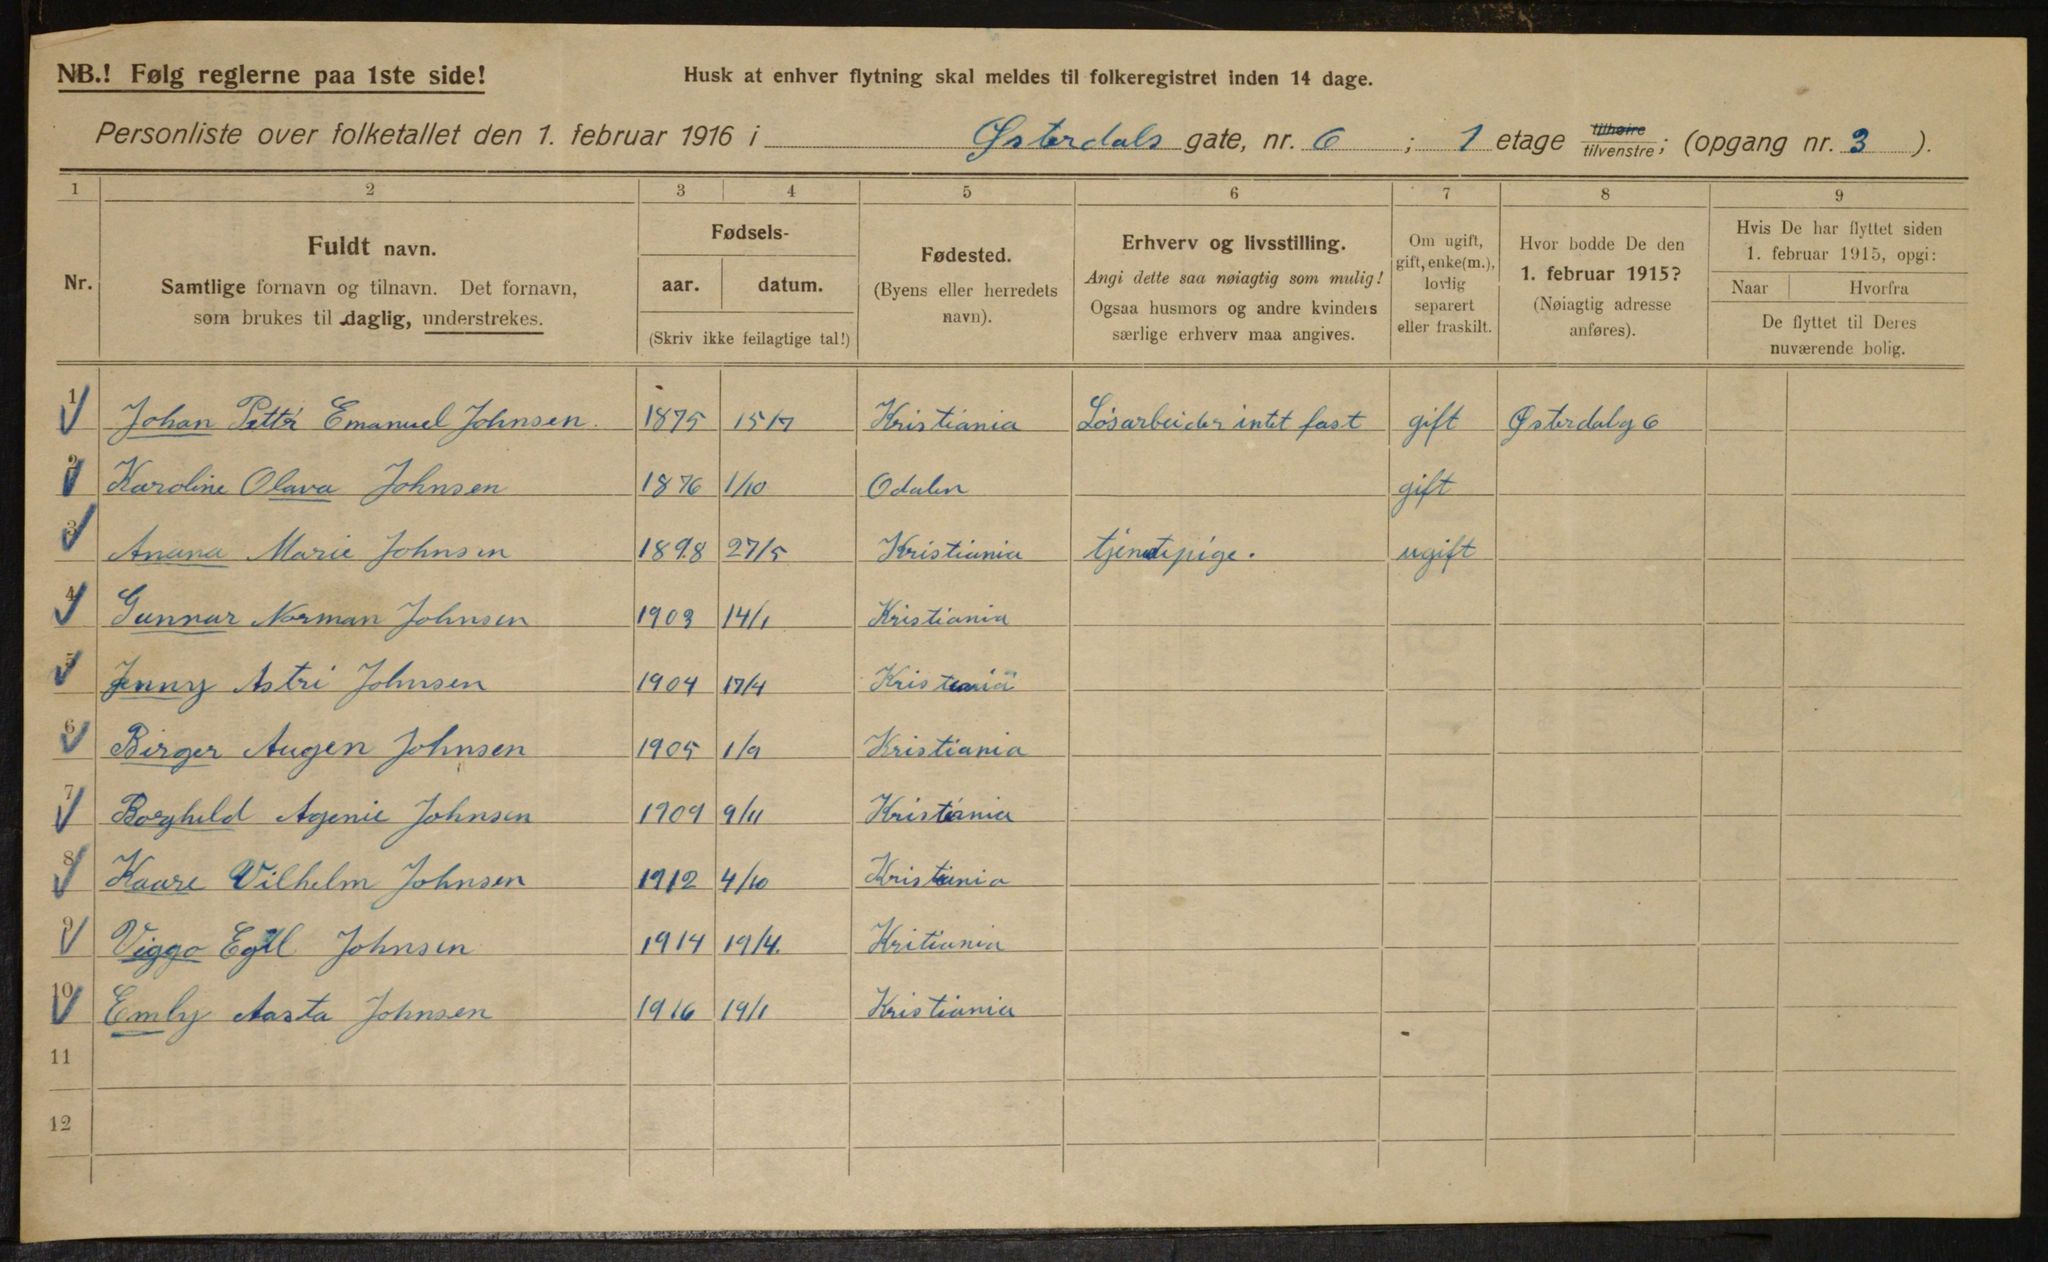 NB.! Følg reglerne paa 1ste side!
Husk at enhver flytning skal meldes til folkeregistret inden 14 dage.
Personliste over folketallet den 1. februar 1916 i Østerdals gate, nr. 6 ; 1 etage tilhøire tilvenstre; (opgang nr. 3 ).
1 2 3 4 5 6 7 8 9
Nr.
Fuldt navn.
Samtlige fornavn og tilnavn. Det fornavn,
som brukes til daglig, understrekes.
Fødsels-
aar. datum.
(Skriv ikke feilagtige tal!)
Fødested.
(Byens eller herredets
navn).
Erhverv og livsstilling.
Angi dette saa nøiagtig som mulig!
Ogsaa husmors og andre kvinders
særlige erhverv maa angives.
Om ugift,
gift, enke(m.),
lovlig
separert
eller fraskilt.
Hvor bodde De den
1. februar 1915?
(Nøiagtig adresse
anføres).
Hvis De har flyttet siden
1. februar 1915, opgi:
Naar Hvorfra
De flyttet til Deres
nuværende bolig.
1 Johan Petter Emanuel Johnsen. 1875 15/7 Kristiania Løsarbeider intet fast gift Østerdalg 6
2 Karoline Olava Johnsen 1876 1/10 Odalen gift
3 Anna Marie Johnsen 1898 27/5 Kristiania tjenstepige. ugift
4 Gunnar Norman Johnsen 1903 14/1 Kristiania
5 Jenny Astri Johnsen 1904 17/4 Kristiania
6 Birger Augen Johnsen 1905 1/9 Kristiania
7 Borghild Agenie Johnsen 1909 9/11 Kristiania
8 Kaare Vilhelm Johnsen 1912 4/10 Kristiania
9 Viggo Egil Johnsen 1914 19/4. Kritiania
10 Emly Aasta Johnsen 1916 19/1 Kristiania
11
12